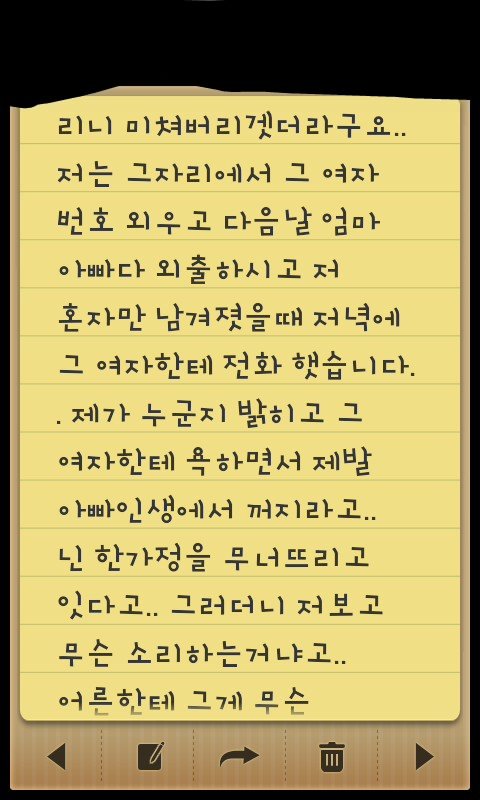 리니 미쳐버리겟더라구요..
저는 그자리에서 그 여자
번호 외우고 다음날 엄마
아빠다 외출하시고 저
혼자만 남겨졋을때 저녁에
그 여자한테 전화 햇습니다.
. 제가 누군지 밝히고 그
여자한테 욕하면서 제발
아빠인생에서 꺼지라고..
닌 한가정을 무너뜨리고
잇다고.. 그러더니 저보고
무슨 소리하는거냐고..
어른한테 그게 무슨